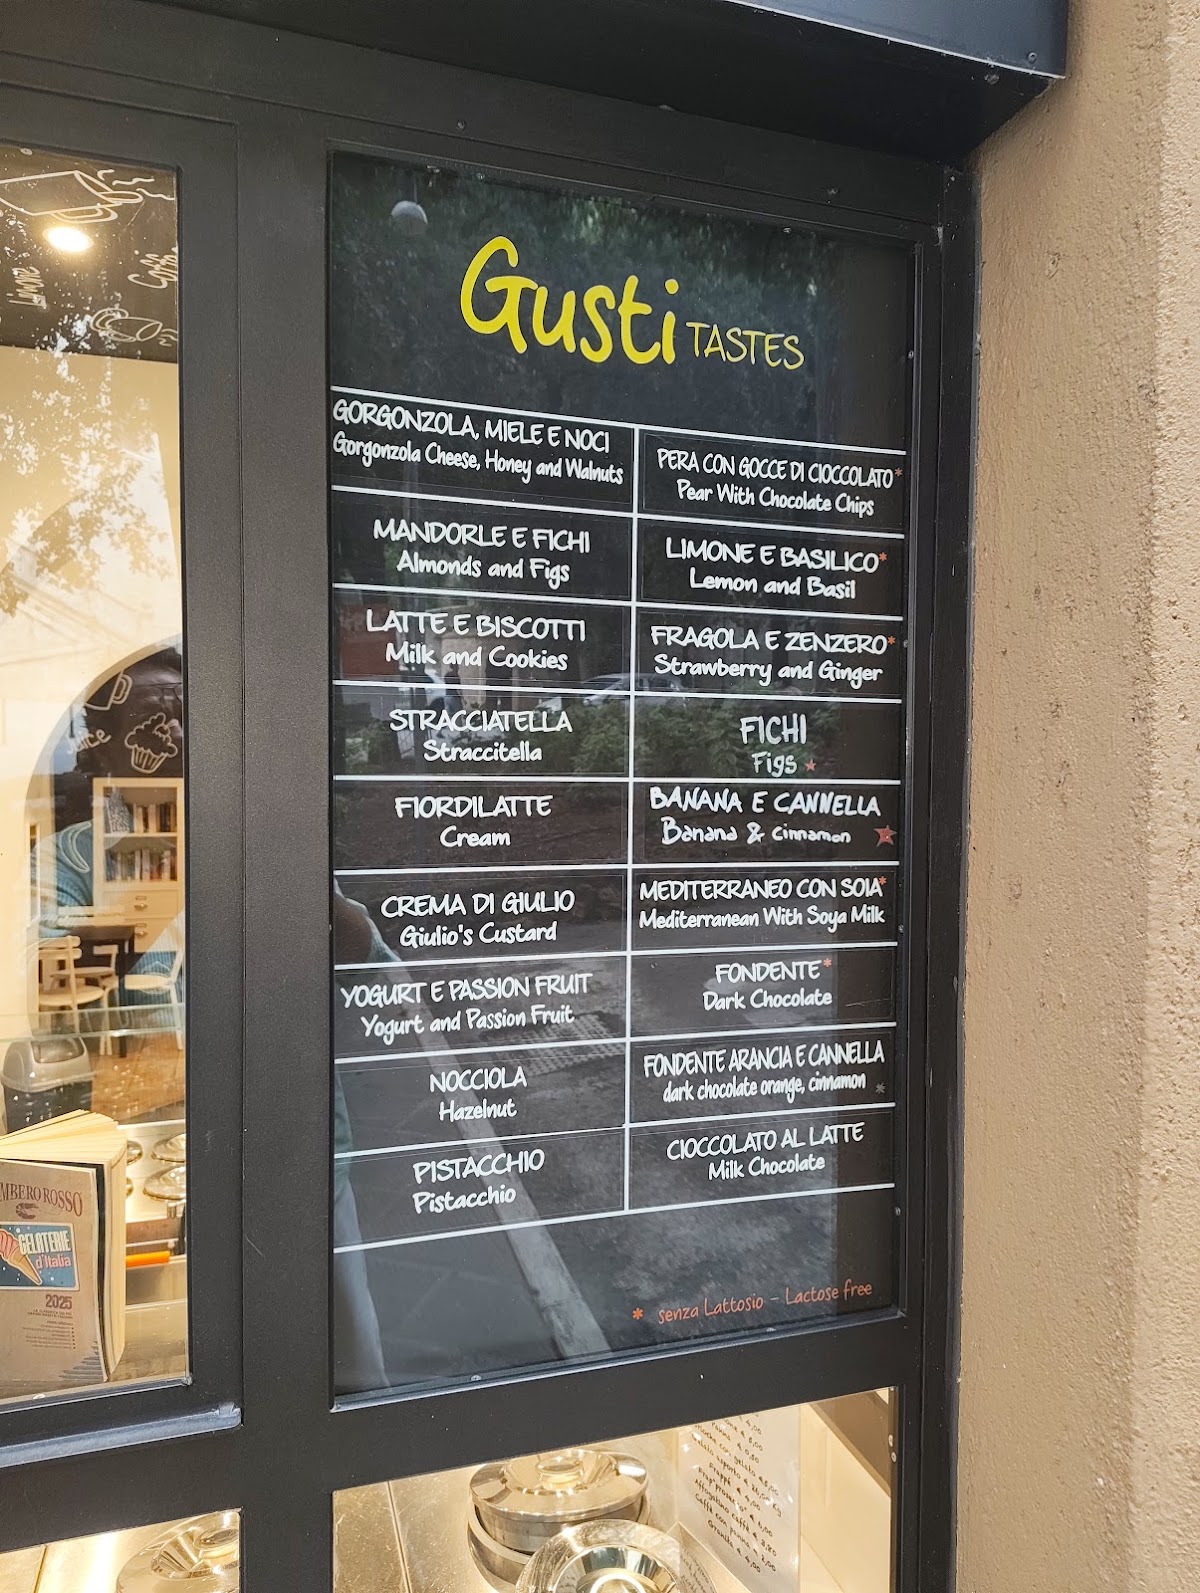 Gusti TASTES
GORGONZOLA, MIELE E NOCI
Gorgonzola Cheese, Honey and Walnuts
MANDORLE E FICHI
Almonds and Figs
LATTE E BISCOTTI
Milk and Cookies
STRACCIATELLA
Straccitella
FIORDILATTE
Cream
CREMA DI GIULIO
Giulio's Custard
YOGURT E PASSION FRUIT
Yogurt and Passion Fruit
NOCCIOLA
Hazelnut
PISTACCHIO
Pistacchio
PERA CON GOCCE DI CIOCCOLATO*
Pear With Chocolate Chips
LIMONE E BASILICO*
Lemon and Basil
FRAGOLA E ZENZERO*
Strawberry and Ginger
FICHI
Figs ★
BANANA E CANNELLA
Banana & cinnamon ★
MEDITERRANEO CON SOIA*
Mediterranean With Soya Milk
FONDENTE*
Dark Chocolate
FONDENTE ARANCIA E CANNELLA
dark chocolate orange, cinnamon *
CIOCCOLATO AL LATTE
Milk Chocolate
* senza Lattosio - Lactose free
MBERO ROSSO
GELATERIE
d'Italia
2025